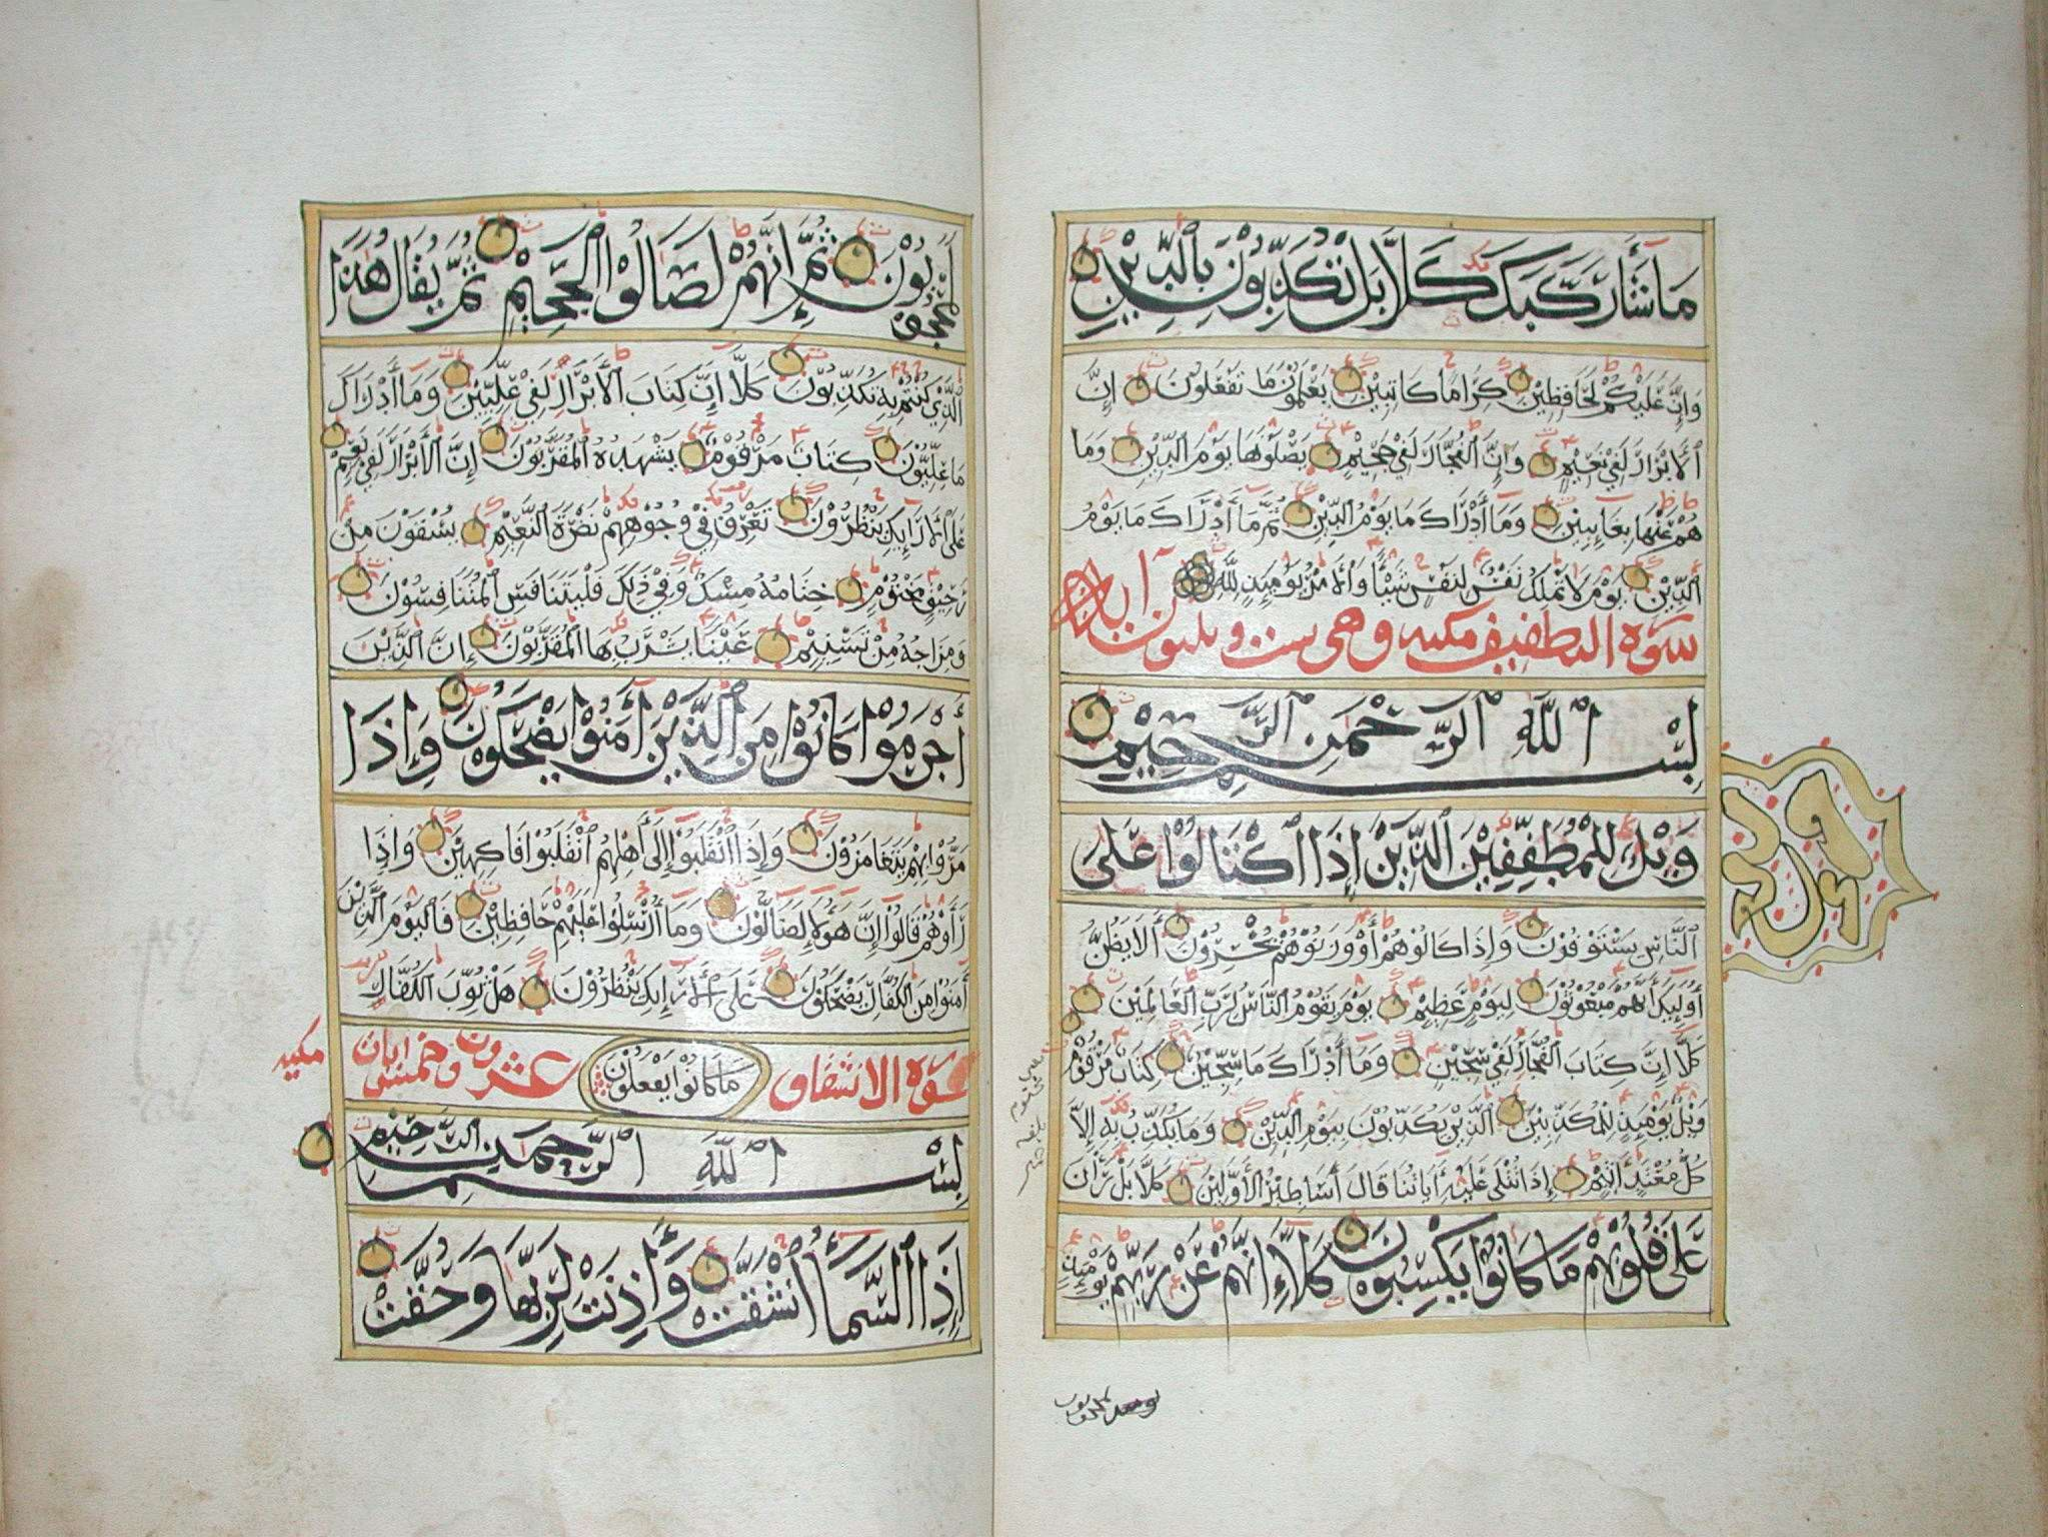 مَا شَآءَ رَكَّبَكَ كَلَّا بَلْ تُكَذِّبُوْنَ بِالدِّيْنِ
وَاِنَّ عَلَيْكُمْ لَحَافِظِيْنَ كِرَامًا كَاتِبِيْنَ يَعْلَمُوْنَ مَا تَفْعَلُوْنَ اِنَّ
الْاَبْرَارَ لَفِيْ نَعِيْمٍ وَاِنَّ الْفُجَّارَ لَفِيْ جَحِيْمٍ يَصْلَوْنَهَا يَوْمَ الدِّيْنِ وَمَا
هُمْ عَنْهَا بِغَائِبِيْنَ وَمَآ اَدْرَاكَ مَا يَوْمُ الدِّيْنِ ثُمَّ مَآ اَدْرَاكَ مَا يَوْمُ
الدِّيْنِ يَوْمَ لَا تَمْلِكُ نَفْسٌ لِنَفْسٍ شَيْئًا وَالْاَمْرُ يَوْمَئِذٍ لِلّٰهِ
سورة التطفيف مكية وهي ست وثلثون اية
بِسْمِ اللّٰهِ الرَّحْمٰنِ الرَّحِيْمِ
وَيْلٌ لِلْمُطَفِّفِيْنَ الَّذِيْنَ اِذَا اكْتَالُوْا عَلَى
النَّاسِ يَسْتَوْفُوْنَ وَاِذَا كَالُوْهُمْ اَوْ وَزَنُوْهُمْ يُخْسِرُوْنَ اَلَا يَظُنُّ
اُولٰٓئِكَ اَنَّهُمْ مَبْعُوْثُوْنَ لِيَوْمٍ عَظِيْمٍ يَوْمَ يَقُوْمُ النَّاسُ لِرَبِّ الْعَالَمِيْنَ
كَلَّا اِنَّ كِتَابَ الْفُجَّارِ لَفِيْ سِجِّيْنٍ وَمَآ اَدْرَاكَ مَا سِجِّيْنٌ كِتَابٌ مَرْقُوْمٌ
وَيْلٌ يَوْمَئِذٍ لِلْمُكَذِّبِيْنَ الَّذِيْنَ يُكَذِّبُوْنَ بِيَوْمِ الدِّيْنِ وَمَا يُكَذِّبُ بِهٖ اِلَّا
كُلُّ مُعْتَدٍ اَثِيْمٍ اِذَا تُتْلٰى عَلَيْهِ اٰيَاتُنَا قَالَ اَسَاطِيْرُ الْاَوَّلِيْنَ كَلَّا بَلْ رَانَ
عَلٰى قُلُوْبِهِمْ مَا كَانُوْا يَكْسِبُوْنَ كَلَّآ اِنَّهُمْ عَنْ رَبِّهِمْ يَوْمَئِذٍ
لَمَحْجُوْبُوْنَ ثُمَّ اِنَّهُمْ لَصَالُوا الْجَحِيْمِ ثُمَّ يُقَالُ هٰذَا
الَّذِيْ كُنْتُمْ بِهٖ تُكَذِّبُوْنَ كَلَّآ اِنَّ كِتَابَ الْاَبْرَارِ لَفِيْ عِلِّيِّيْنَ وَمَآ اَدْرَاكَ
مَا عِلِّيُّوْنَ كِتَابٌ مَرْقُوْمٌ يَشْهَدُهُ الْمُقَرَّبُوْنَ اِنَّ الْاَبْرَارَ لَفِيْ نَعِيْمٍ
عَلَى الْاَرَآئِكِ يَنْظُرُوْنَ تَعْرِفُ فِيْ وُجُوْهِهِمْ نَضْرَةَ النَّعِيْمِ يُسْقَوْنَ مِنْ
رَحِيْقٍ مَخْتُوْمٍ خِتَامُهُ مِسْكٌ وَفِيْ ذٰلِكَ فَلْيَتَنَافَسِ الْمُتَنَافِسُوْنَ
وَمِزَاجُهُ مِنْ تَسْنِيْمٍ عَيْنًا يَشْرَبُ بِهَا الْمُقَرَّبُوْنَ اِنَّ الَّذِيْنَ
اَجْرَمُوْا كَانُوْا مِنَ الَّذِيْنَ اٰمَنُوْا يَضْحَكُوْنَ وَاِذَا
مَرُّوْا بِهِمْ يَتَغَامَزُوْنَ وَاِذَا انْقَلَبُوْٓا اِلٰٓى اَهْلِهِمُ انْقَلَبُوْا فَاكِهِيْنَ وَاِذَا
رَاَوْهُمْ قَالُوْٓا اِنَّ هٰٓؤُلَآءِ لَضَآلُّوْنَ وَمَآ اُرْسِلُوْا عَلَيْهِمْ حَافِظِيْنَ فَالْيَوْمَ الَّذِيْنَ
اٰمَنُوْا مِنَ الْكُفَّارِ يَضْحَكُوْنَ عَلَى الْاَرَآئِكِ يَنْظُرُوْنَ هَلْ ثُوِّبَ الْكُفَّارُ
سورة الانشقاق مَا كَانُوْا يَفْعَلُوْنَ عشرون وخمس ايات مكية
بِسْمِ اللّٰهِ الرَّحْمٰنِ الرَّحِيْمِ
اِذَا السَّمَآءُ انْشَقَّتْ وَاَذِنَتْ لِرَبِّهَا وَحُقَّتْ